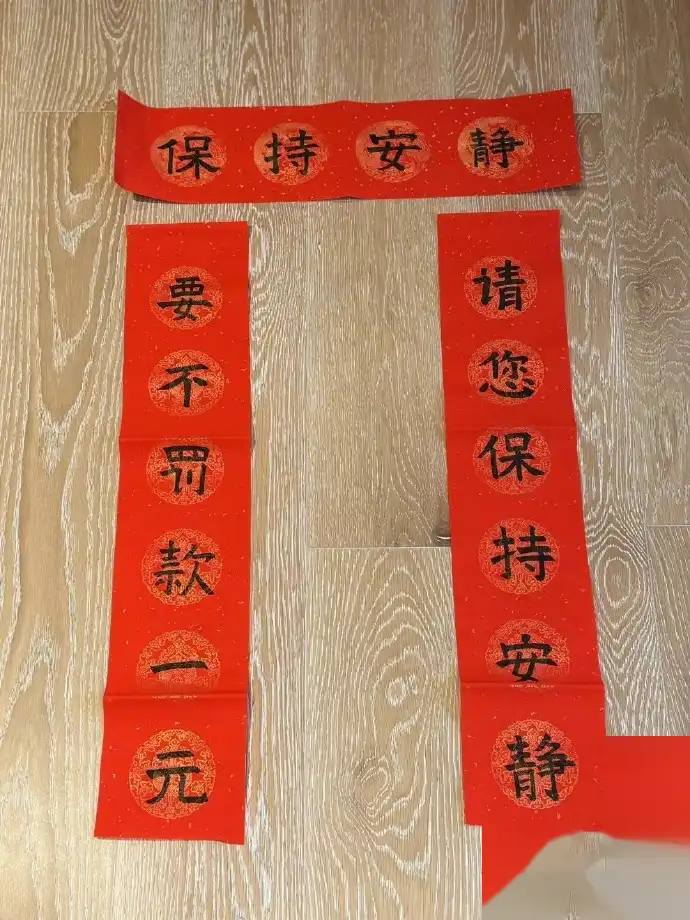 保持安静
请您保持安静
要不罚款一元